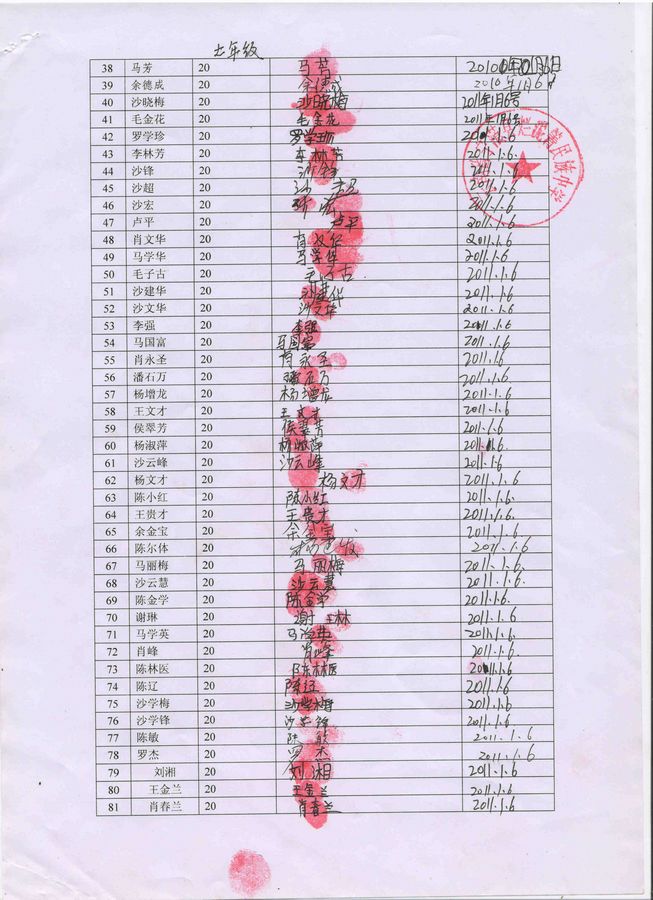 七年级
38 马芳 20 马芳 2010年01月6日
39 余德成 20 余德成 2010年1月6日
40 沙晓梅 20 沙晓梅 2011年1月6号
41 毛金花 20 毛金花 2011年1月6号
42 罗学珍 20 罗学珍 2011.1.6
43 李林芳 20 李林芳 2011.1.6
44 沙锋 20 沙锋 2011.1.6
45 沙超 20 沙超 2011.1.6
46 沙宏 20 沙宏 2011.1.6
47 卢平 20 卢平 2011.1.6
48 肖文华 20 肖文华 2011.1.6
49 马学华 20 马学华 2011.1.6
50 毛子古 20 毛子古 2011.1.6
51 沙建华 20 沙建华 2011.1.6
52 沙文华 20 沙文华 2011.1.6
53 李强 20 李强 2011.1.6
54 马国富 20 马国富 2011.1.6
55 肖永圣 20 肖永圣 2011.1.6
56 潘石万 20 潘石万 2011.1.6
57 杨增龙 20 杨增龙 2011.1.6
58 王文才 20 王文才 2011.1.6
59 侯翠芳 20 侯翠芳 2011.1.6
60 杨淑萍 20 杨淑萍 2011.1.6
61 沙云峰 20 沙云峰 2011.1.6
62 杨文才 20 杨文才 2011.1.6
63 陈小红 20 陈小红 2011.1.6
64 王贵才 20 王贵才 2011.1.6
65 余金宝 20 余金宝 2011.1.6
66 陈尔体 20 2011.1.6
67 马丽梅 20 马丽梅 2011.1.6
68 沙云慧 20 沙云慧 2011.1.6
69 陈金学 20 陈金学 2011.1.6
70 谢琳 20 谢琳 2011.1.6
71 马学英 20 马学英 2011.1.6
72 肖峰 20 肖峰 2011.1.6
73 陈林医 20 陈林医 2011.1.6
74 陈辽 20 陈辽 2011.1.6
75 沙学梅 20 沙学梅 2011.1.6
76 沙学锋 20 沙学锋 2011.1.6
77 陈敏 20 陈敏 2011.1.6
78 罗杰 20 罗杰 2011.1.6
79 刘湘 20 刘湘 2011.1.6
80 王金兰 20 王金兰 2011.1.6
81 肖春兰 20 肖春兰 2011.1.6